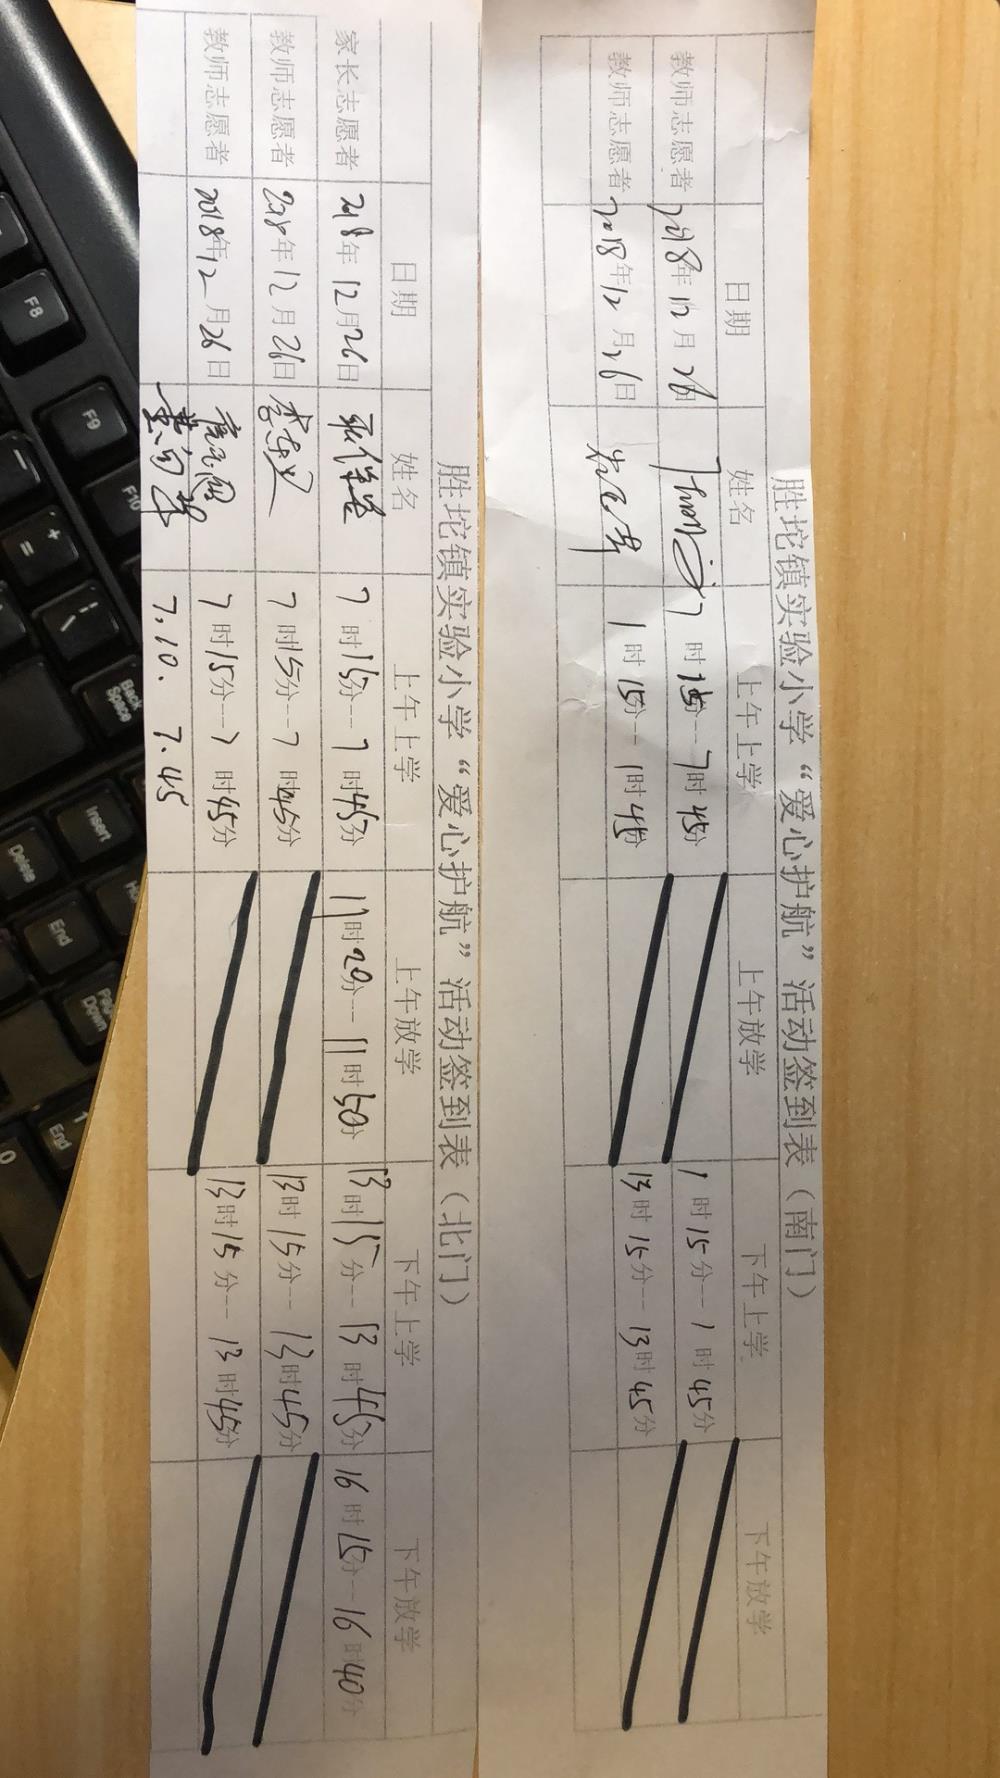 胜坨镇实验小学“爱心护航”活动签到表（南门）
日期 姓名 上午上学 上午放学 下午上学 下午放学
教师志愿者 2018年12月26日 7时15分--7时45分 1时15分--1时45分
教师志愿者 2018年12月26日 1时15分--1时45分 13时15分--13时45分
胜坨镇实验小学“爱心护航”活动签到表（北门）
日期 姓名 上午上学 上午放学 下午上学 下午放学
家长志愿者 2018年12月26日 7时15分--7时45分 11时20分--11时50分 13时15分--13时45分 16时15分--16时40分
教师志愿者 2018年12月26日 7时15分--7时45分 13时15分--13时45分
教师志愿者 2018年12月26日 7时15分--7时45分 13时15分--13时45分
7.10. 7.45
F8
F9
F10
Back Space
Insert
Delete
End
Page Down
End